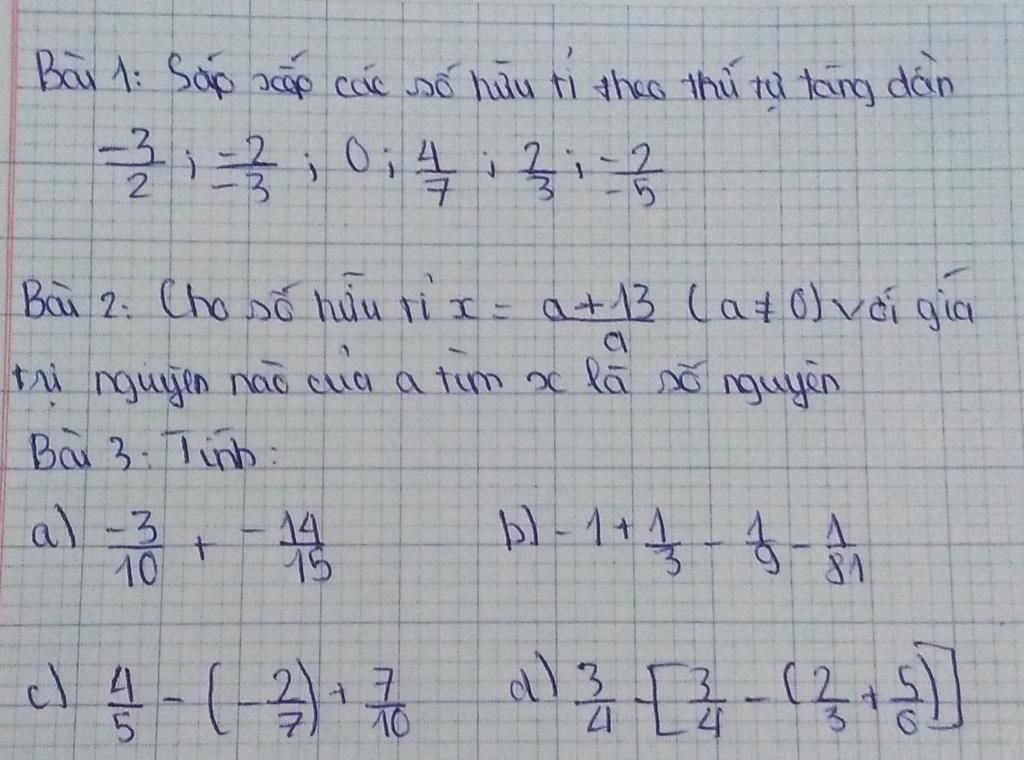 Bài 1: Sắp xếp các số hữu tỉ theo thứ tự tăng dần
-3/2 ; -2/-3 ; 0 ; 4/7 ; 2/3 ; -2/-5
Bài 2: Cho số hữu tỉ x = a+13/a (a ≠ 0) với giá
trị nguyên nào của a tìm x là số nguyên
Bài 3: Tính:
a) -3/10 + -14/15 b) -1 + 1/3 - 1/9 - 1/81
c) 4/5 - (-2/7) + 7/10 d) 3/4 - [3/4 - (2/3 + 5/6)]